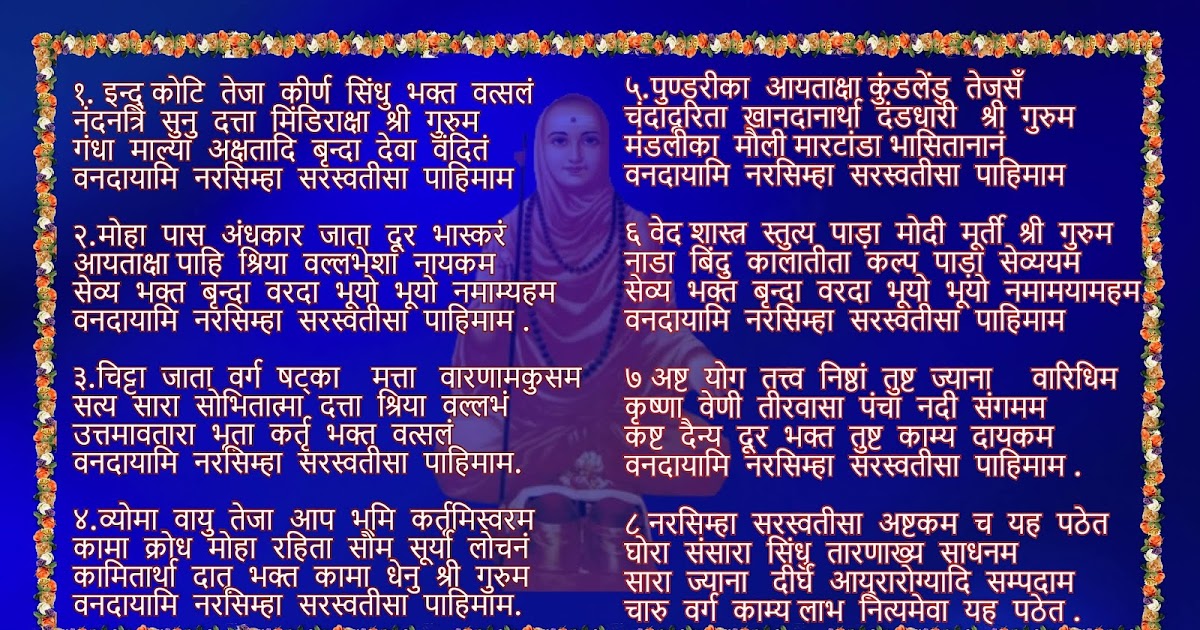 १. इन्दु कोटि तेजा कीर्ण सिंधु भक्त वत्सलं
नंदनत्रि सुनु दत्ता मिंडिराक्षा श्री गुरुम
गंधा माल्या अक्षतादि बृन्दा देवा वंदितं
वनदायामि नरसिम्हा सरस्वतीसा पाहिमाम
२.मोहा पास अंधकार जाता दूर भास्करं
आयताक्षा पाहि श्रिया वल्लभेशा नायकम
सेव्य भक्त बृन्दा वरदा भूयो भूयो नमाम्यहम
वनदायामि नरसिम्हा सरस्वतीसा पाहिमाम .
३.चिट्टा जाता वर्ग षट्का मत्ता वारणामकुसम
सत्य सारा सोभितात्मा दत्ता श्रिया वल्लभं
उत्तमावतारा भूता कर्तृ भक्त वत्सलं
वनदायामि नरसिम्हा सरस्वतीसा पाहिमाम.
४.व्योमा वायु तेजा आप भूमि कर्तृमिस्वरम
कामा क्रोध मोहा रहिता सौम सूर्या लोचनं
कामितार्था दातृ भक्त कामा धेनु श्री गुरुम
वनदायामि नरसिम्हा सरस्वतीसा पाहिमाम.
५.पुण्डरीका आयताक्षा कुंडलेंडु तेजसँ
चंदादुरिता खानदानार्था दंडधारी श्री गुरुम
मंडलीका मौली मारटांडा भासितानानं
वनदायामि नरसिम्हा सरस्वतीसा पाहिमाम
६ वेद शास्त्र स्तुत्य पाड़ा मोदी मूर्ती श्री गुरुम
नाडा बिंदु कालातीता कल्प पाड़ा सेव्ययम
सेव्य भक्त बृन्दा वरदा भूयो भूयो नमामयामहम
वनदायामि नरसिम्हा सरस्वतीसा पाहिमाम
७ अष्ट योग तत्त्व निष्ठां तुष्ट ज्याना वारिधिम
कृष्णा वेणी तीरवासा पंचा नदी संगमम
कष्ट दैन्य दूर भक्त तुष्ट काम्य दायकम
वनदायामि नरसिम्हा सरस्वतीसा पाहिमाम .
८.नरसिम्हा सरस्वतीसा अष्टकम च यह पठेत
घोरा संसारा सिंधु तारणाख्य साधनम
सारा ज्याना दीर्घ आयुरारोग्यादि सम्पदाम
चारु वर्ग काम्य लाभ नित्यमेवा यह पठेत .